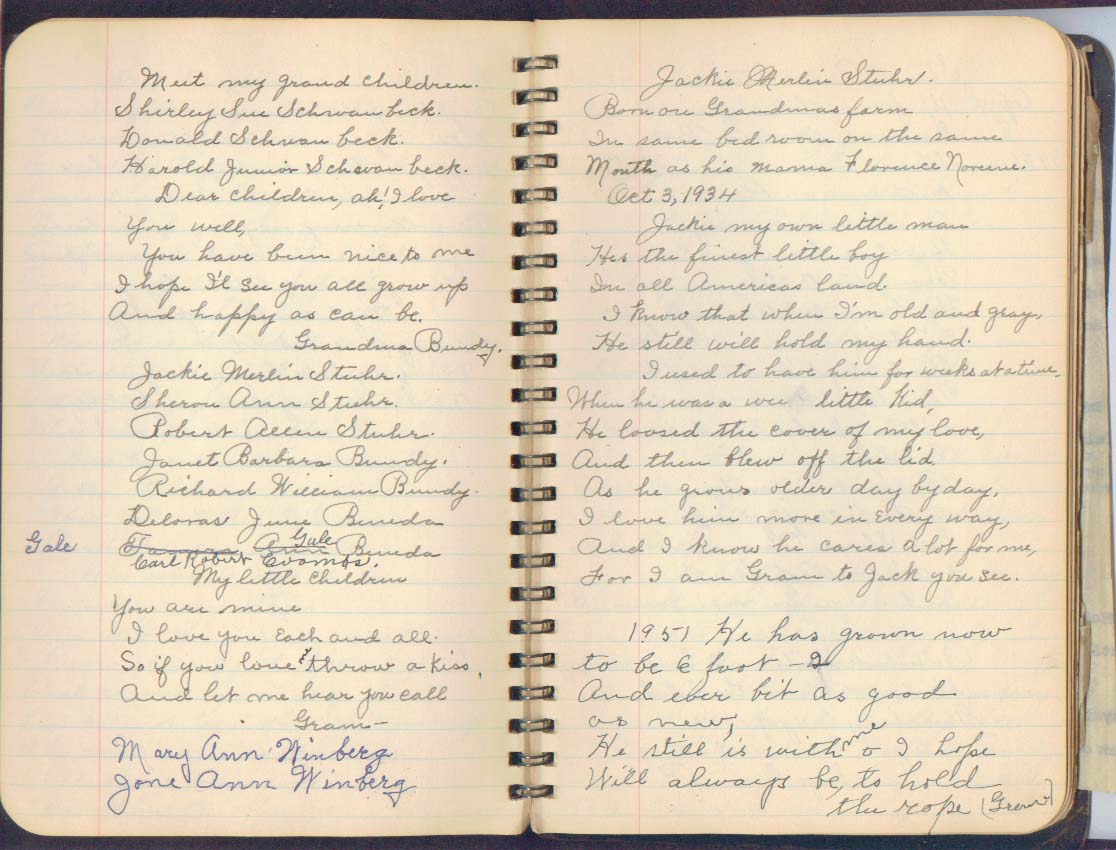 Meet my grand children.
Shirley Sue Schwanbeck.
Donald Schwanbeck.
Harold Junior Schwanbeck.
Dear children, ah! I love
You will,
You have been nice to me
I hope I'll see you all grow up
And happy as can be.
Grandma Bundy.
Jackie Merlin Stuhr.
Sheron Ann Stuhr.
Robert Allen Stuhr.
Janet Barbara Bundy.
Richard William Bundy.
Deloras June Beneda
Gale
Gale
Tamara Ann Beneda
Carl Robert
My little children
You are mine
I love you Each and all.
So if you love & throw a kiss,
And let me hear you call
Gram—
Mary Ann Winberg
Jone Ann Winberg
Jackie Merlin Stuhr.
Born on Grandmas farm
In same bed room on the same
Month as his mama Florence Noreene.
Oct 3, 1934
Jackie my own little man
Hes the finest little boy
In all Americas land.
I know that when I'm old and gray,
He still will hold my hand.
I used to have him for weeks at a time,
When he was a wee little Kid,
He loosed the cover of my love,
And then blew off the lid.
As he grows older day by day,
I love him more in Every way,
And I know he cares a lot for me,
For I am Gram to Jack you see.
1951 He has grown now
to be 6 foot - 2
And ever bit as good
as new,
He still is with me & I hope
Will always be, to hold
the rope (Gram)